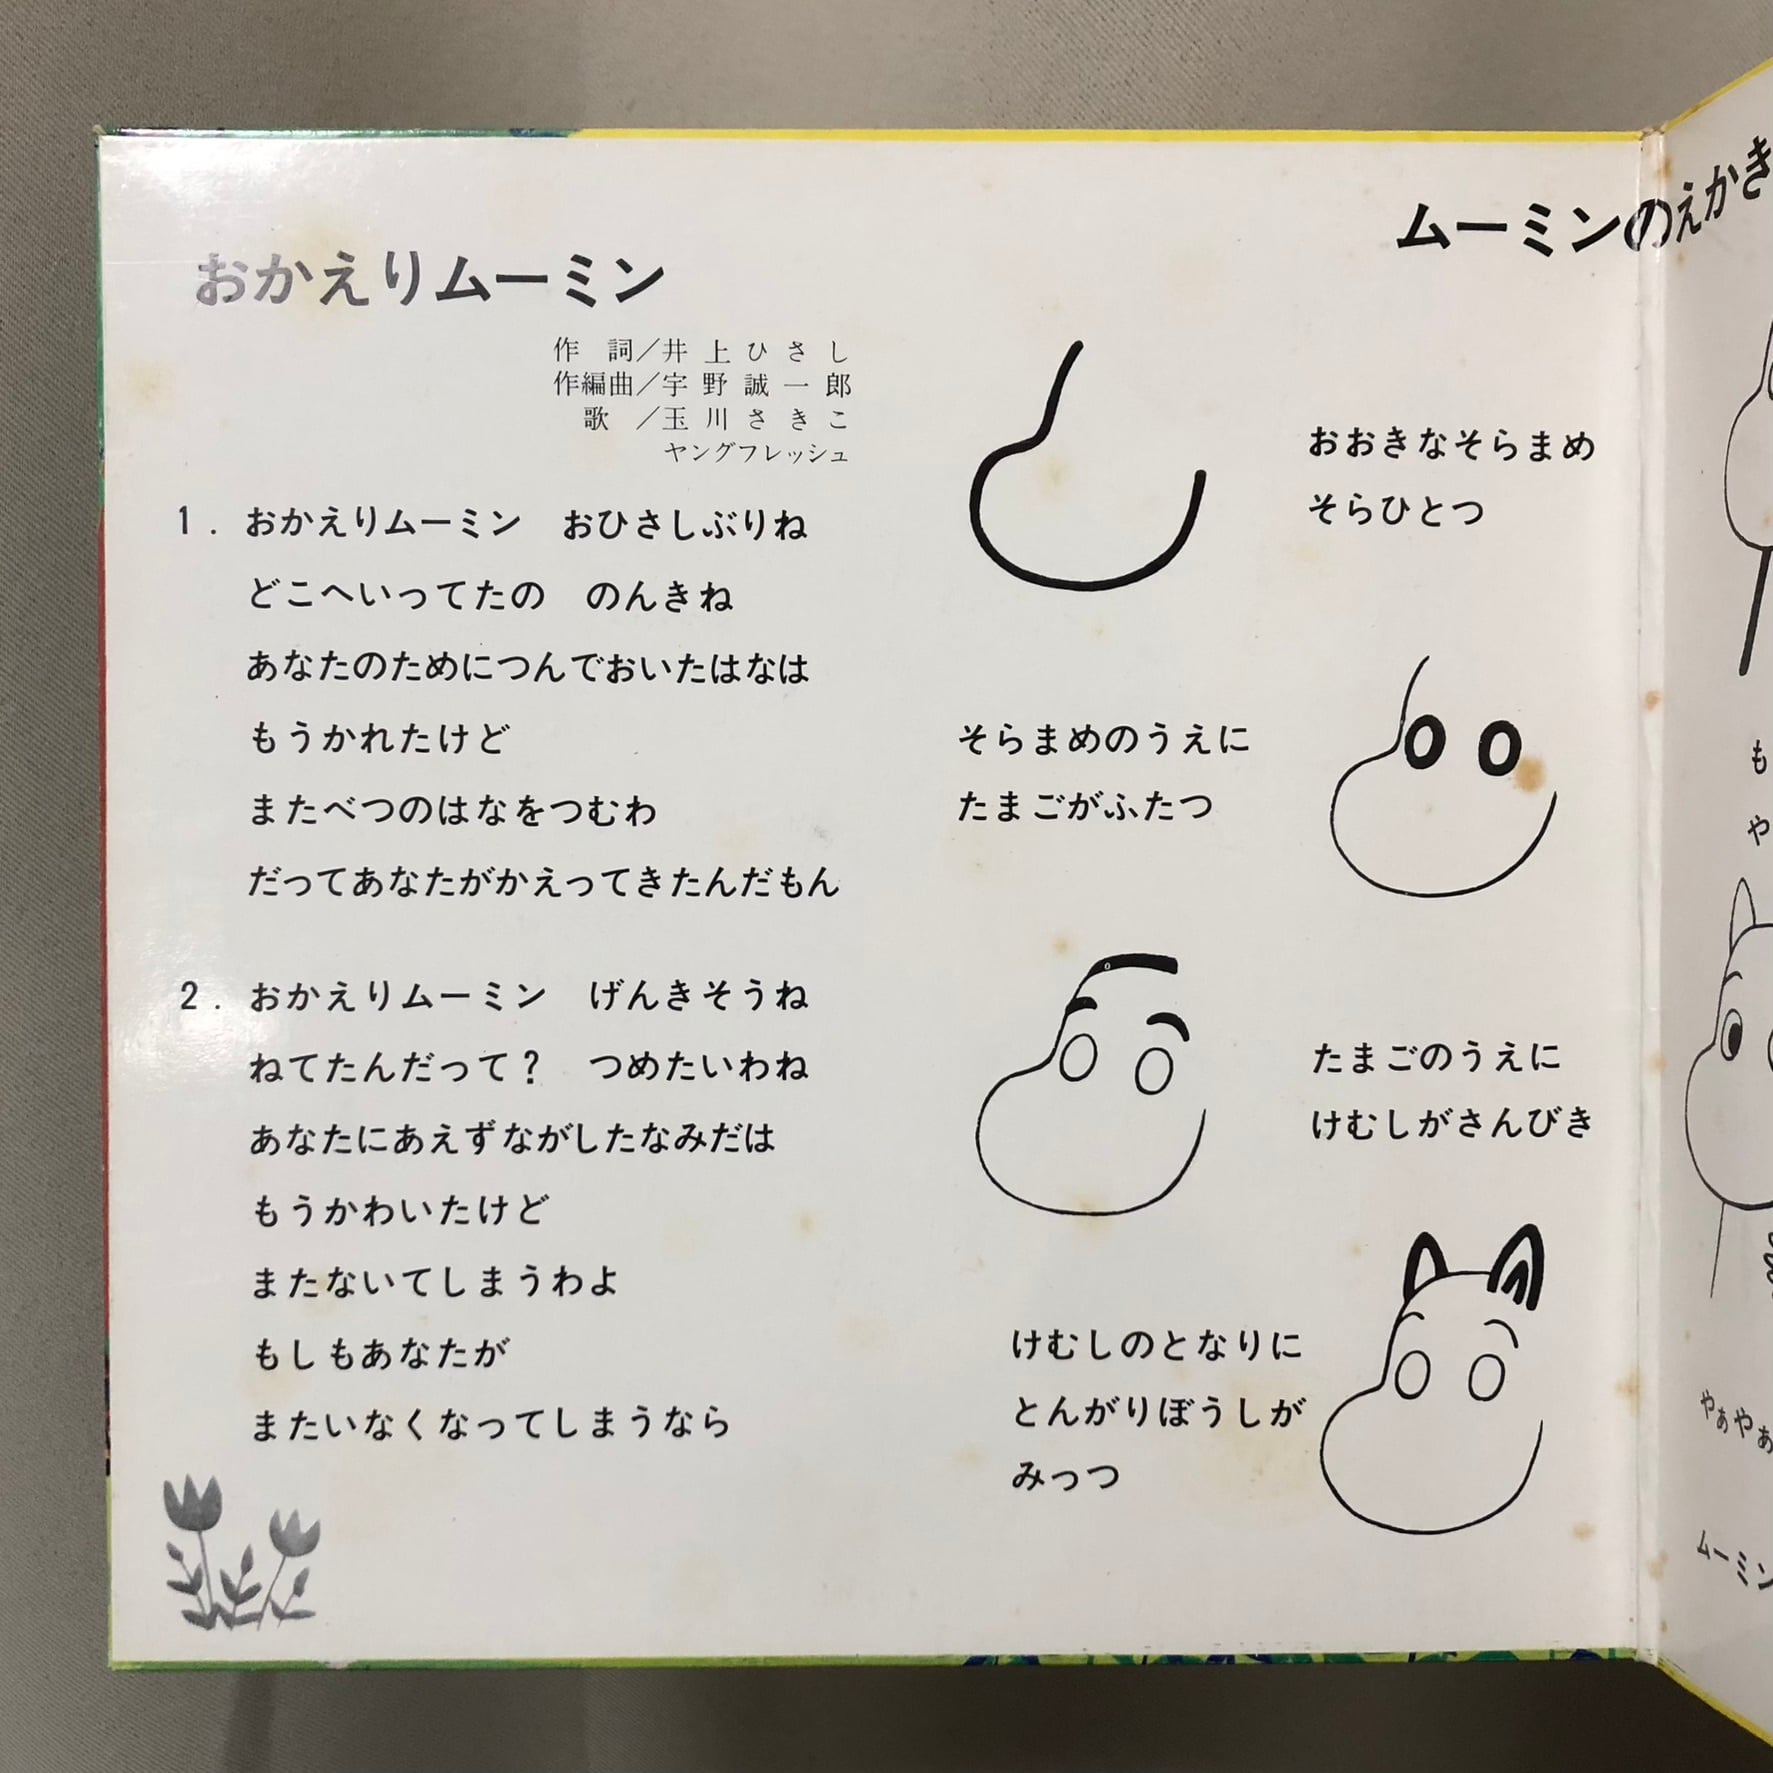 おかえりムーミン
作詞／井上ひさし
作編曲／宇野誠一郎
歌／玉川さきこ
ヤングフレッシュ
1. おかえりムーミン　おひさしぶりね
どこへいってたの　のんきね
あなたのためにつんでおいたはなは
もうかれたけど
またべつのはなをつむわ
だってあなたがかえってきたんだもん
2. おかえりムーミン　げんきそうね
ねてたんだって？　つめたいわね
あなたにあえずながしたなみだは
もうかわいたけど
またないてしまうわよ
もしもあなたが
またいなくなってしまうなら
ムーミンのえかき
おおきなそらまめ
そらひとつ
そらまめのうえに
たまごがふたつ
たまごのうえに
けむしがさんびき
けむしのとなりに
とんがりぼうしが
みっつ
も
や
やぁやぁ
ムーミン